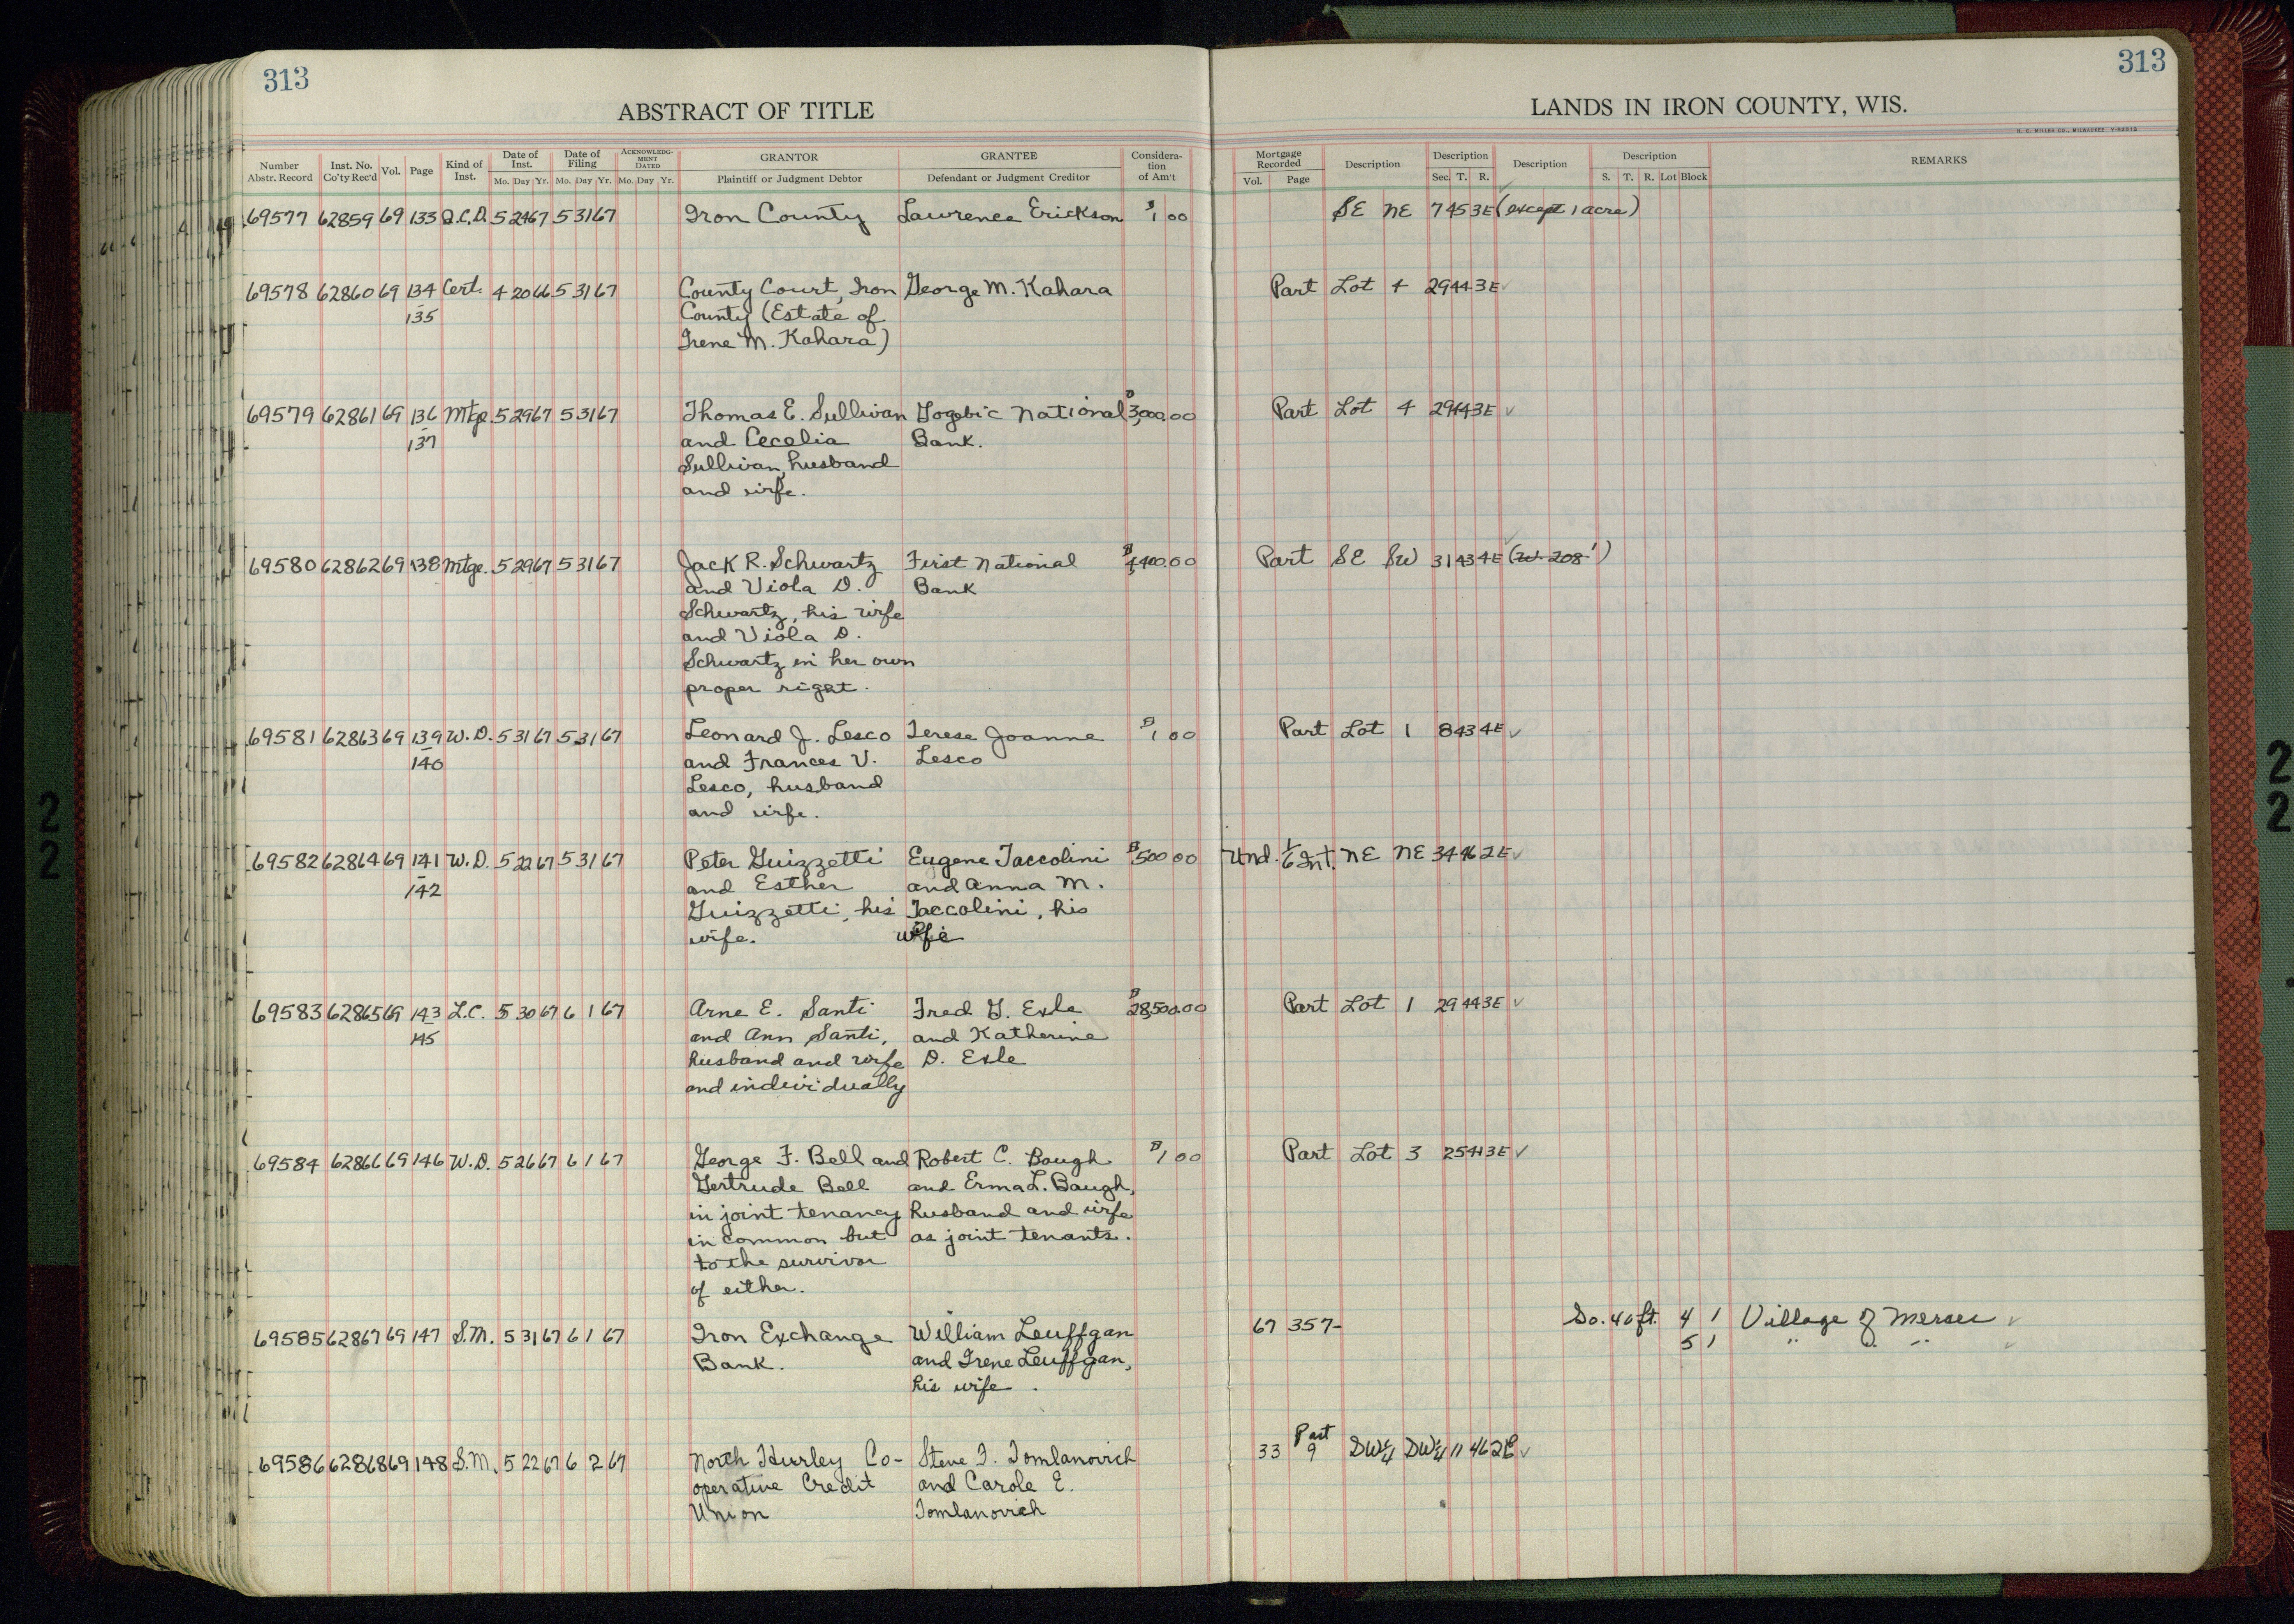 313
ABSTRACT OF TITLE
Number Abstr. Record Inst. No. Co'ty Rec'd Vol. Page Kind of Inst. Date of Inst. Mo. Day Yr. Date of Filing Mo. Day Yr. ACKNOWLEDGMENT DATED Mo. Day Yr. GRANTOR Plaintiff or Judgment Debtor GRANTEE Defendant or Judgment Creditor Consideration of Am't
69577 62859 69 133 Q.C.D. 5 24 67 5 31 67 Iron County Lawrence Erickson $1 00
69578 62860 69 134 Cert. 4 20 66 5 31 67 County Court, Iron George M. Kahara
135 County (Estate of
Irene M. Kahara)
69579 62861 69 136 Mtge. 5 29 67 5 31 67 Thomas E. Sullivan Gogebic National $3,000.00
137 and Cecelia Bank.
Sullivan, husband
and wife.
69580 62862 69 138 Mtge. 5 29 67 5 31 67 Jack R. Schwartz First National $4,400.00
and Viola D. Bank
Schwartz, his wife
and Viola D.
Schwartz in her own
proper right.
69581 62863 69 139 W.D. 5 31 67 5 31 67 Leonard J. Lesco Terese Joanne $1 00
140 and Frances V. Lesco
Lesco, husband
and wife.
69582 62864 69 141 W.D. 5 22 67 5 31 67 Peter Guizzetti Eugene Taccolini $500 00
142 and Esther and Anna M.
Guizzetti, his Taccolini, his
wife. wife
69583 62865 69 143 L.C. 5 30 67 6 1 67 Arne E. Santi Fred G. Exle $28,500.00
145 and Ann Santi, and Katherine
husband and wife D. Exle
and individually
69584 62866 69 146 W.D. 5 26 67 6 1 67 George F. Bell and Robert C. Baugh $1 00
Gertrude Bell and Erma L. Baugh,
in joint tenancy husband and wife
in common but as joint tenants.
to the survivor
of either.
69585 62867 69 147 S.M. 5 31 67 6 1 67 Iron Exchange William Leuffgan
Bank. and Irene Leuffgan,
his wife.
69586 62868 69 148 S.M. 5 22 67 6 2 67 North Hurley Co- Steve F. Tomlanovich
operative Credit and Carole E.
Union Tomlanovich
313
LANDS IN IRON COUNTY, WIS.
H. C. MILLER CO., MILWAUKEE
Mortgage Recorded Vol. Page Description Description Sec. T. R. Description Description S. T. R. Lot Block REMARKS
SE NE 7 45 3E (except 1 acre)
Part Lot 4 29 44 3E ✓
Part Lot 4 29 44 3E ✓
Part SE SW 31 43 4E (W. 208')
Part Lot 1 8 43 4E ✓
Und. 1/6 Int. NE NE 34 46 2E ✓
Part Lot 1 29 44 3E ✓
Part Lot 3 25 41 3E ✓
67 357 So. 40 ft. 4 1 Village of Mercer ✓
5 1 " " ✓
Part
33 9 SW¼ SW¼ 11 46 2E ✓
2
2
2
2